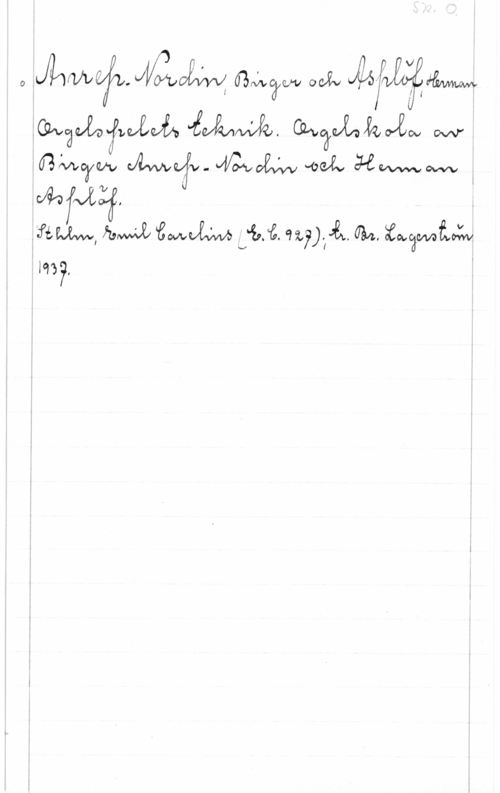 Sv. O.
Anrep-Nordin, Birger och Asplöf, Herman
Orgelspelets teknik. Orgelskola av
Birger Anrep-Nordin och Herman
Asplöf.
Sthlm, Emil Carelius (E.C. 927); tr. Br. Lagerström
1937.